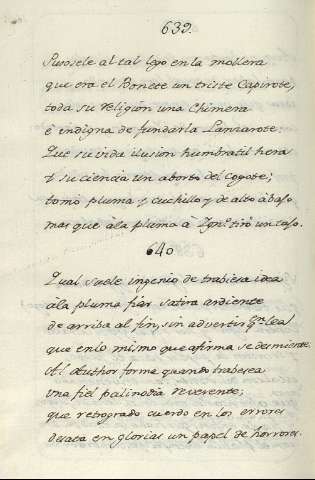 639.
Pusosele al tal lego en la mollera
que era el Bonete un triste Capirote,
toda su religion una Chimera
è indigna de fundarla Lanzarote.
Que su vida ilusion humbratil hera
y su ciencia un aborto del coyote;
tomò pluma y cuchillo y de alto à bajo
mas que à la pluma à Ign.º tirò un tajo.
640
Qual suele ingenio de trabiesa idea
à la pluma fiar satira ardiente
de arriba al fin, sin advertir q.n lea
que en lo mismo que afirma se desmiente.
Al Author forma quando trabesea
una fiel palinodia reverente;
que retrogrado cuerdo en los errores
desata en glorias un papel de horrores.